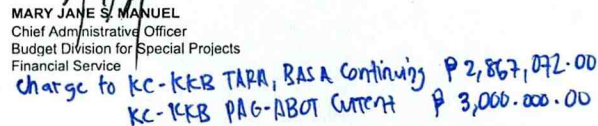 MARY JANE S. MANUEL
Chief Administrative Officer
Budget Division for Special Projects
Financial Service
Charge to KC-KKB TARA, BASA Continuing ₱ 2,867,072.00
KC-KKB PAG-ABOT Current ₱ 3,000.000.00